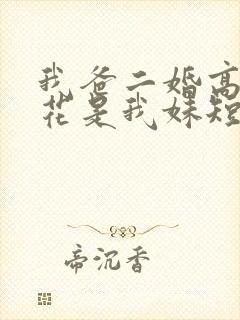 我爸二婚高
花是我妹短
帝沉香